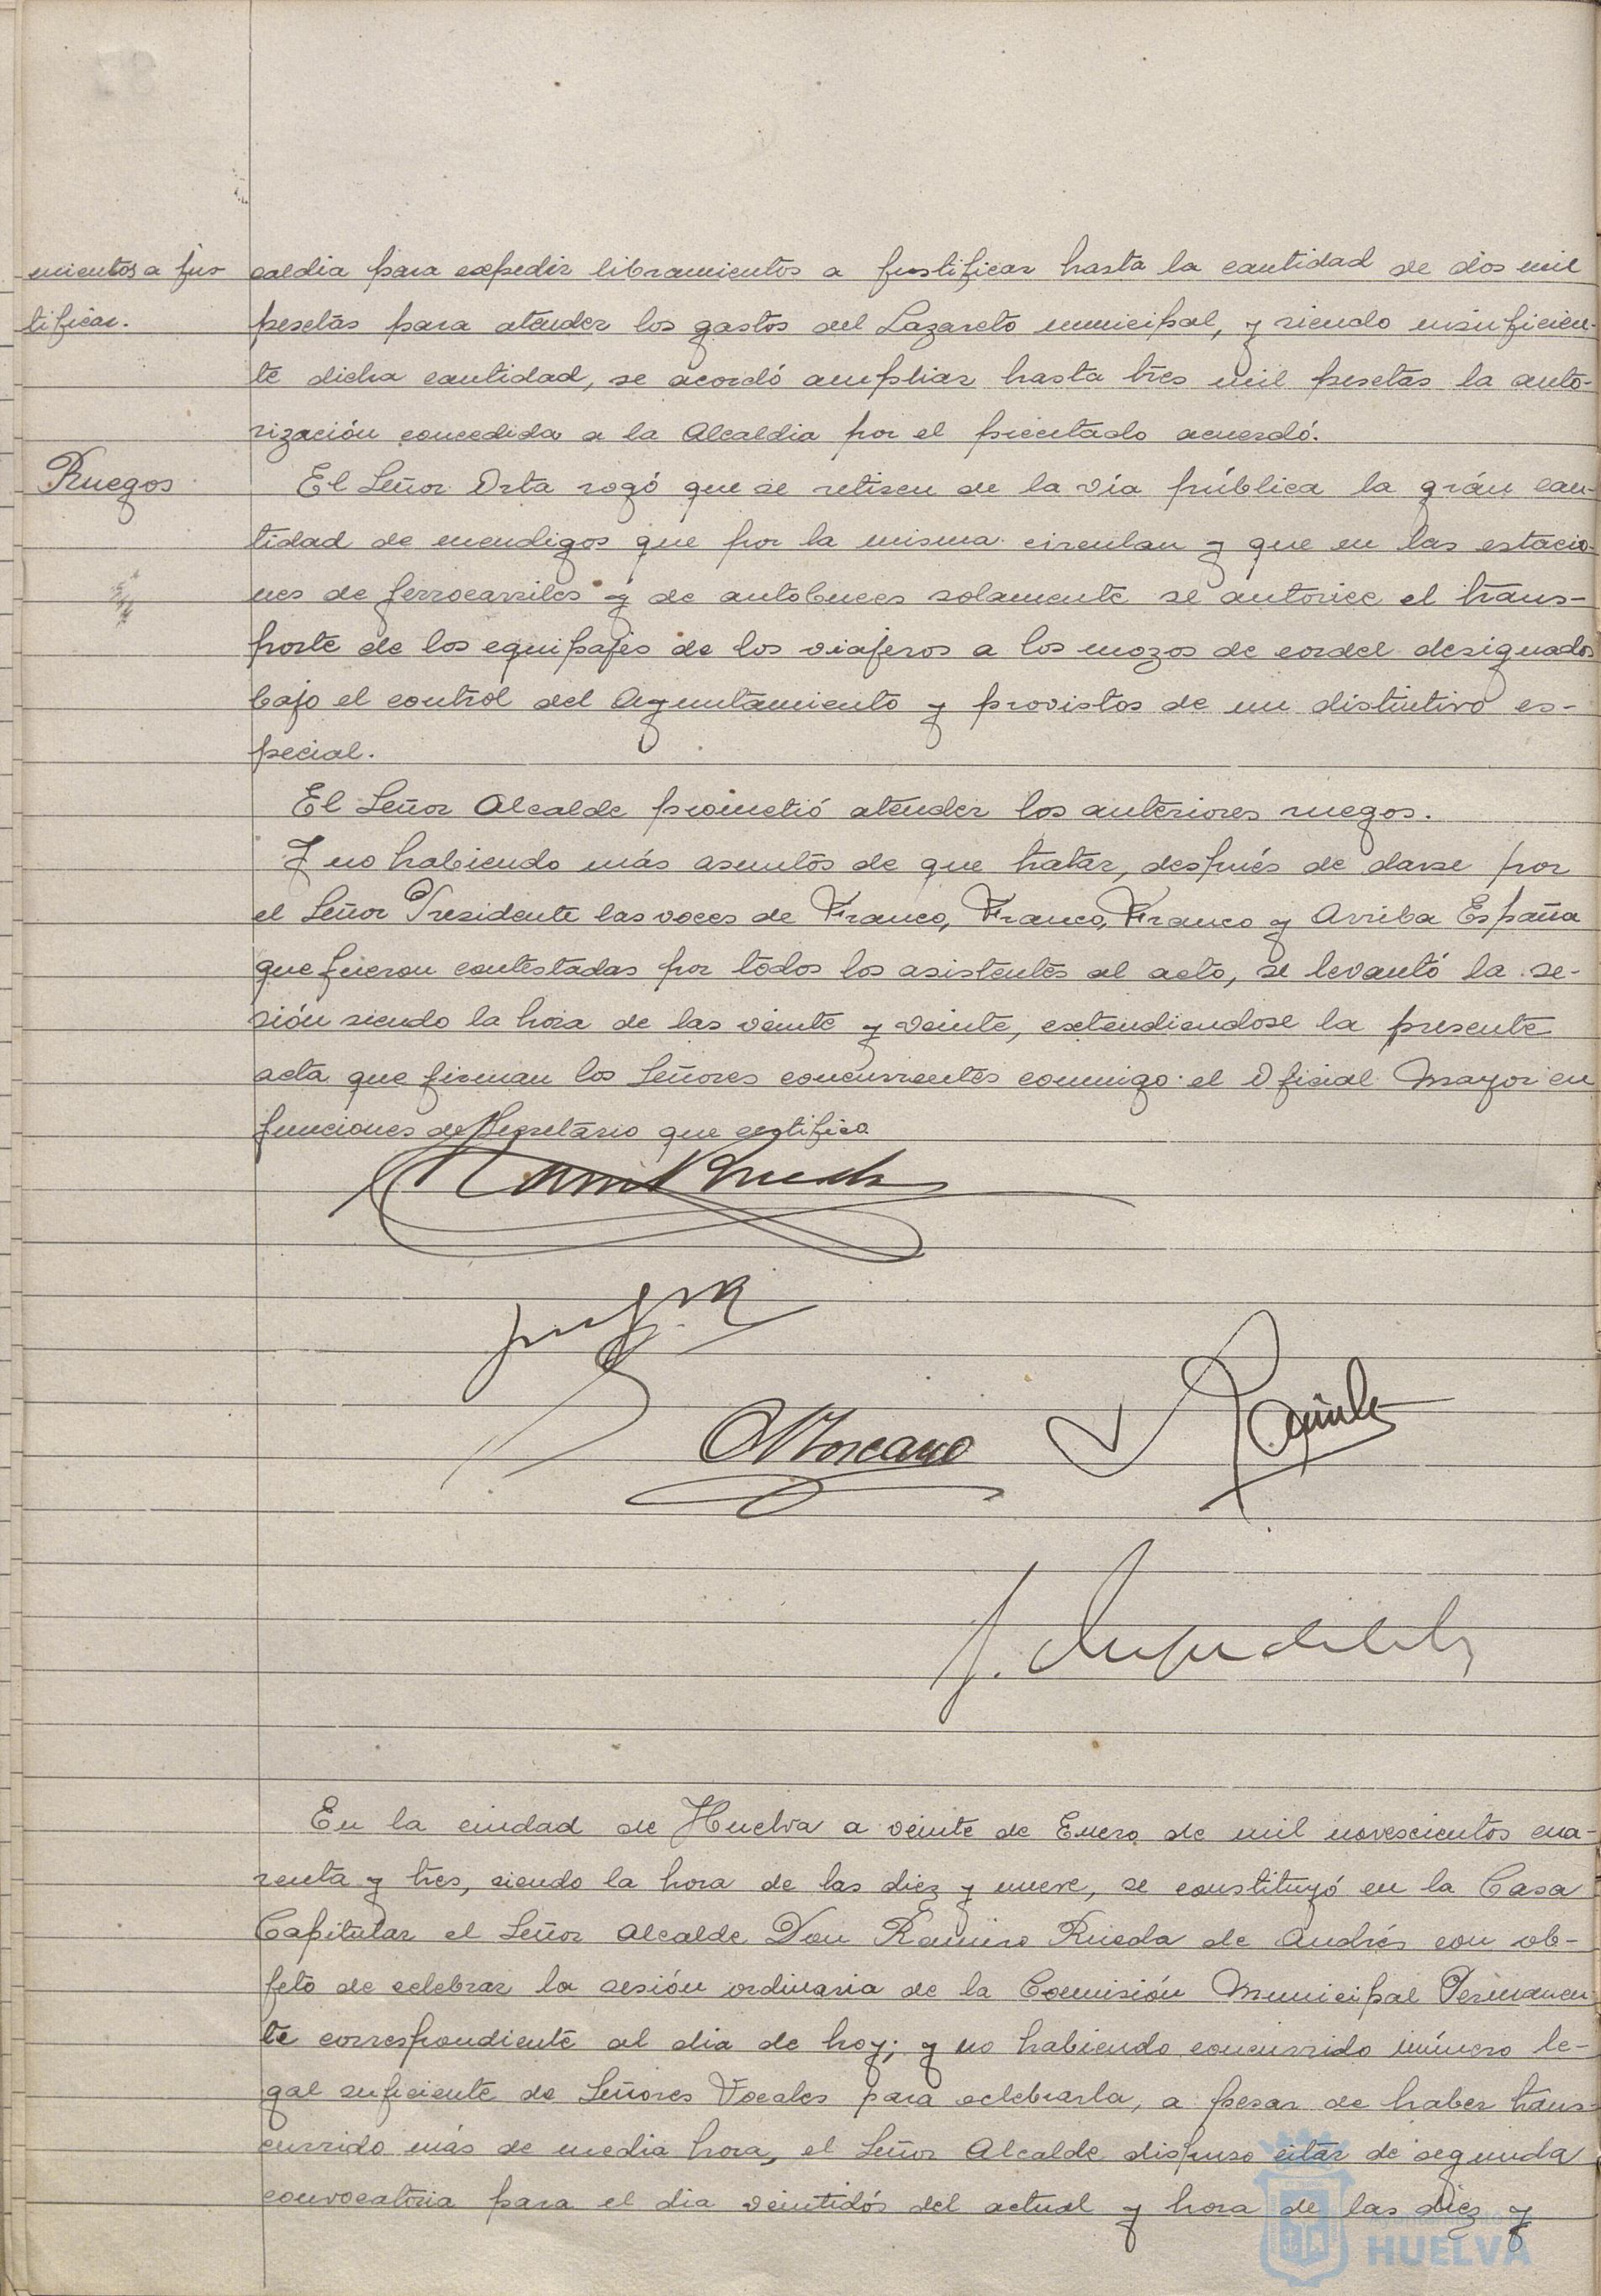 mientos a jus-
tificar.
caldia para expedir libramientos a justificar hasta la cantidad de dos mil
pesetas para atender los gastos del Lazareto municipal, y siendo insuficien-
te dicha cantidad, se acordó ampliar hasta tres mil pesetas la auto-
rización concedida a la Alcaldia por el precitado acuerdó.
Ruegos
El Señor Orta rogó que se retiren de la vía pública la grán can-
tidad de mendigos que por la misma circulan y que en las estacio-
nes de ferrocarriles y de autobuces solamente se autorice el trans-
porte de los equipajes de los viajeros a los mozos de cordel designados
bajo el control del Ayuntamiento y provistos de un distintivo es-
pecial.
El Señor Alcalde prometió atender los anteriores ruegos.
Y no habiendo más asuntos de que tratar, después de darse por
el Señor Presidente las voces de Franco, Franco, Franco y Arriba España
que fueron contestadas por todos los asistentes al acto, se levantó la se-
sión siendo la hora de las veinte y veinte, extendiendose la presente
acta que firman los Señores concurrentes conmigo el Oficial Mayor en
funciones de Secretario que certifico.
En la ciudad de Huelva a veinte de Enero de mil novescientos cua-
renta y tres, siendo la hora de las diez y nueve, se constituyó en la Casa
Capitular el Señor Alcalde Don Ramiro Rueda de Andrés con ob-
jeto de celebrar la sesión ordinaria de la Comisión Municipal Permanen-
te correspondiente al dia de hoy; y no habiendo concurrido número le-
gal suficiente de Señores Vocales para celebrarla, a pesar de haber trans-
currido más de media hora, el Señor Alcalde dispuso citar de segunda
convocatoria para el dia veintidós del actual y hora de las diez y
HUELVA